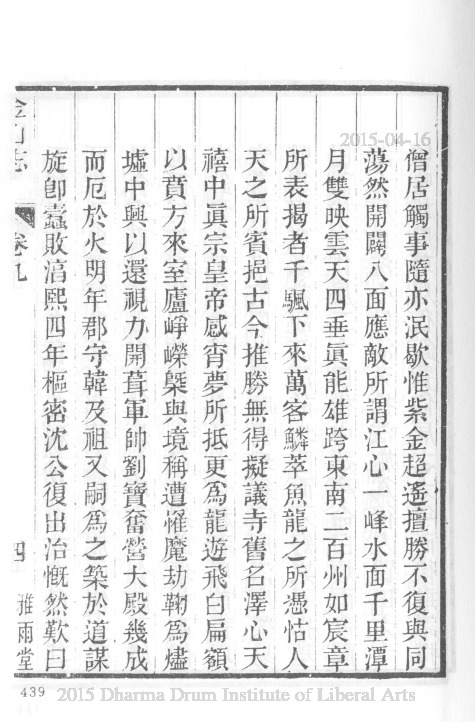 2015-04-16
僧居觸事隨亦泯歇惟紫金超遙擅勝不復與同
蕩然開闢八面應敵所謂江心一峰水面千里潭
月雙映雲天四垂眞能雄跨東南二百州如宸章
所表揭者千颿下來萬客鱗萃魚龍之所憑怙人
天之所賓挹古今推勝無得擬議寺舊名澤心天
禧中眞宗皇帝感宵夢所抵更爲龍遊飛白扁額
以賁方來室廬崢嶸槩與境稱遭罹魔劫鞠爲燼
墟中興以還視力開葺軍帥劉寶奮營大殿幾成
而厄於火明年郡守韓及祖又嗣爲之築於道謀
旋卽蠹敗淳熙四年樞密沈公復出治慨然歎曰
金山志
卷九
四
雅雨堂
439
2015 Dharma Drum Institute of Liberal Arts